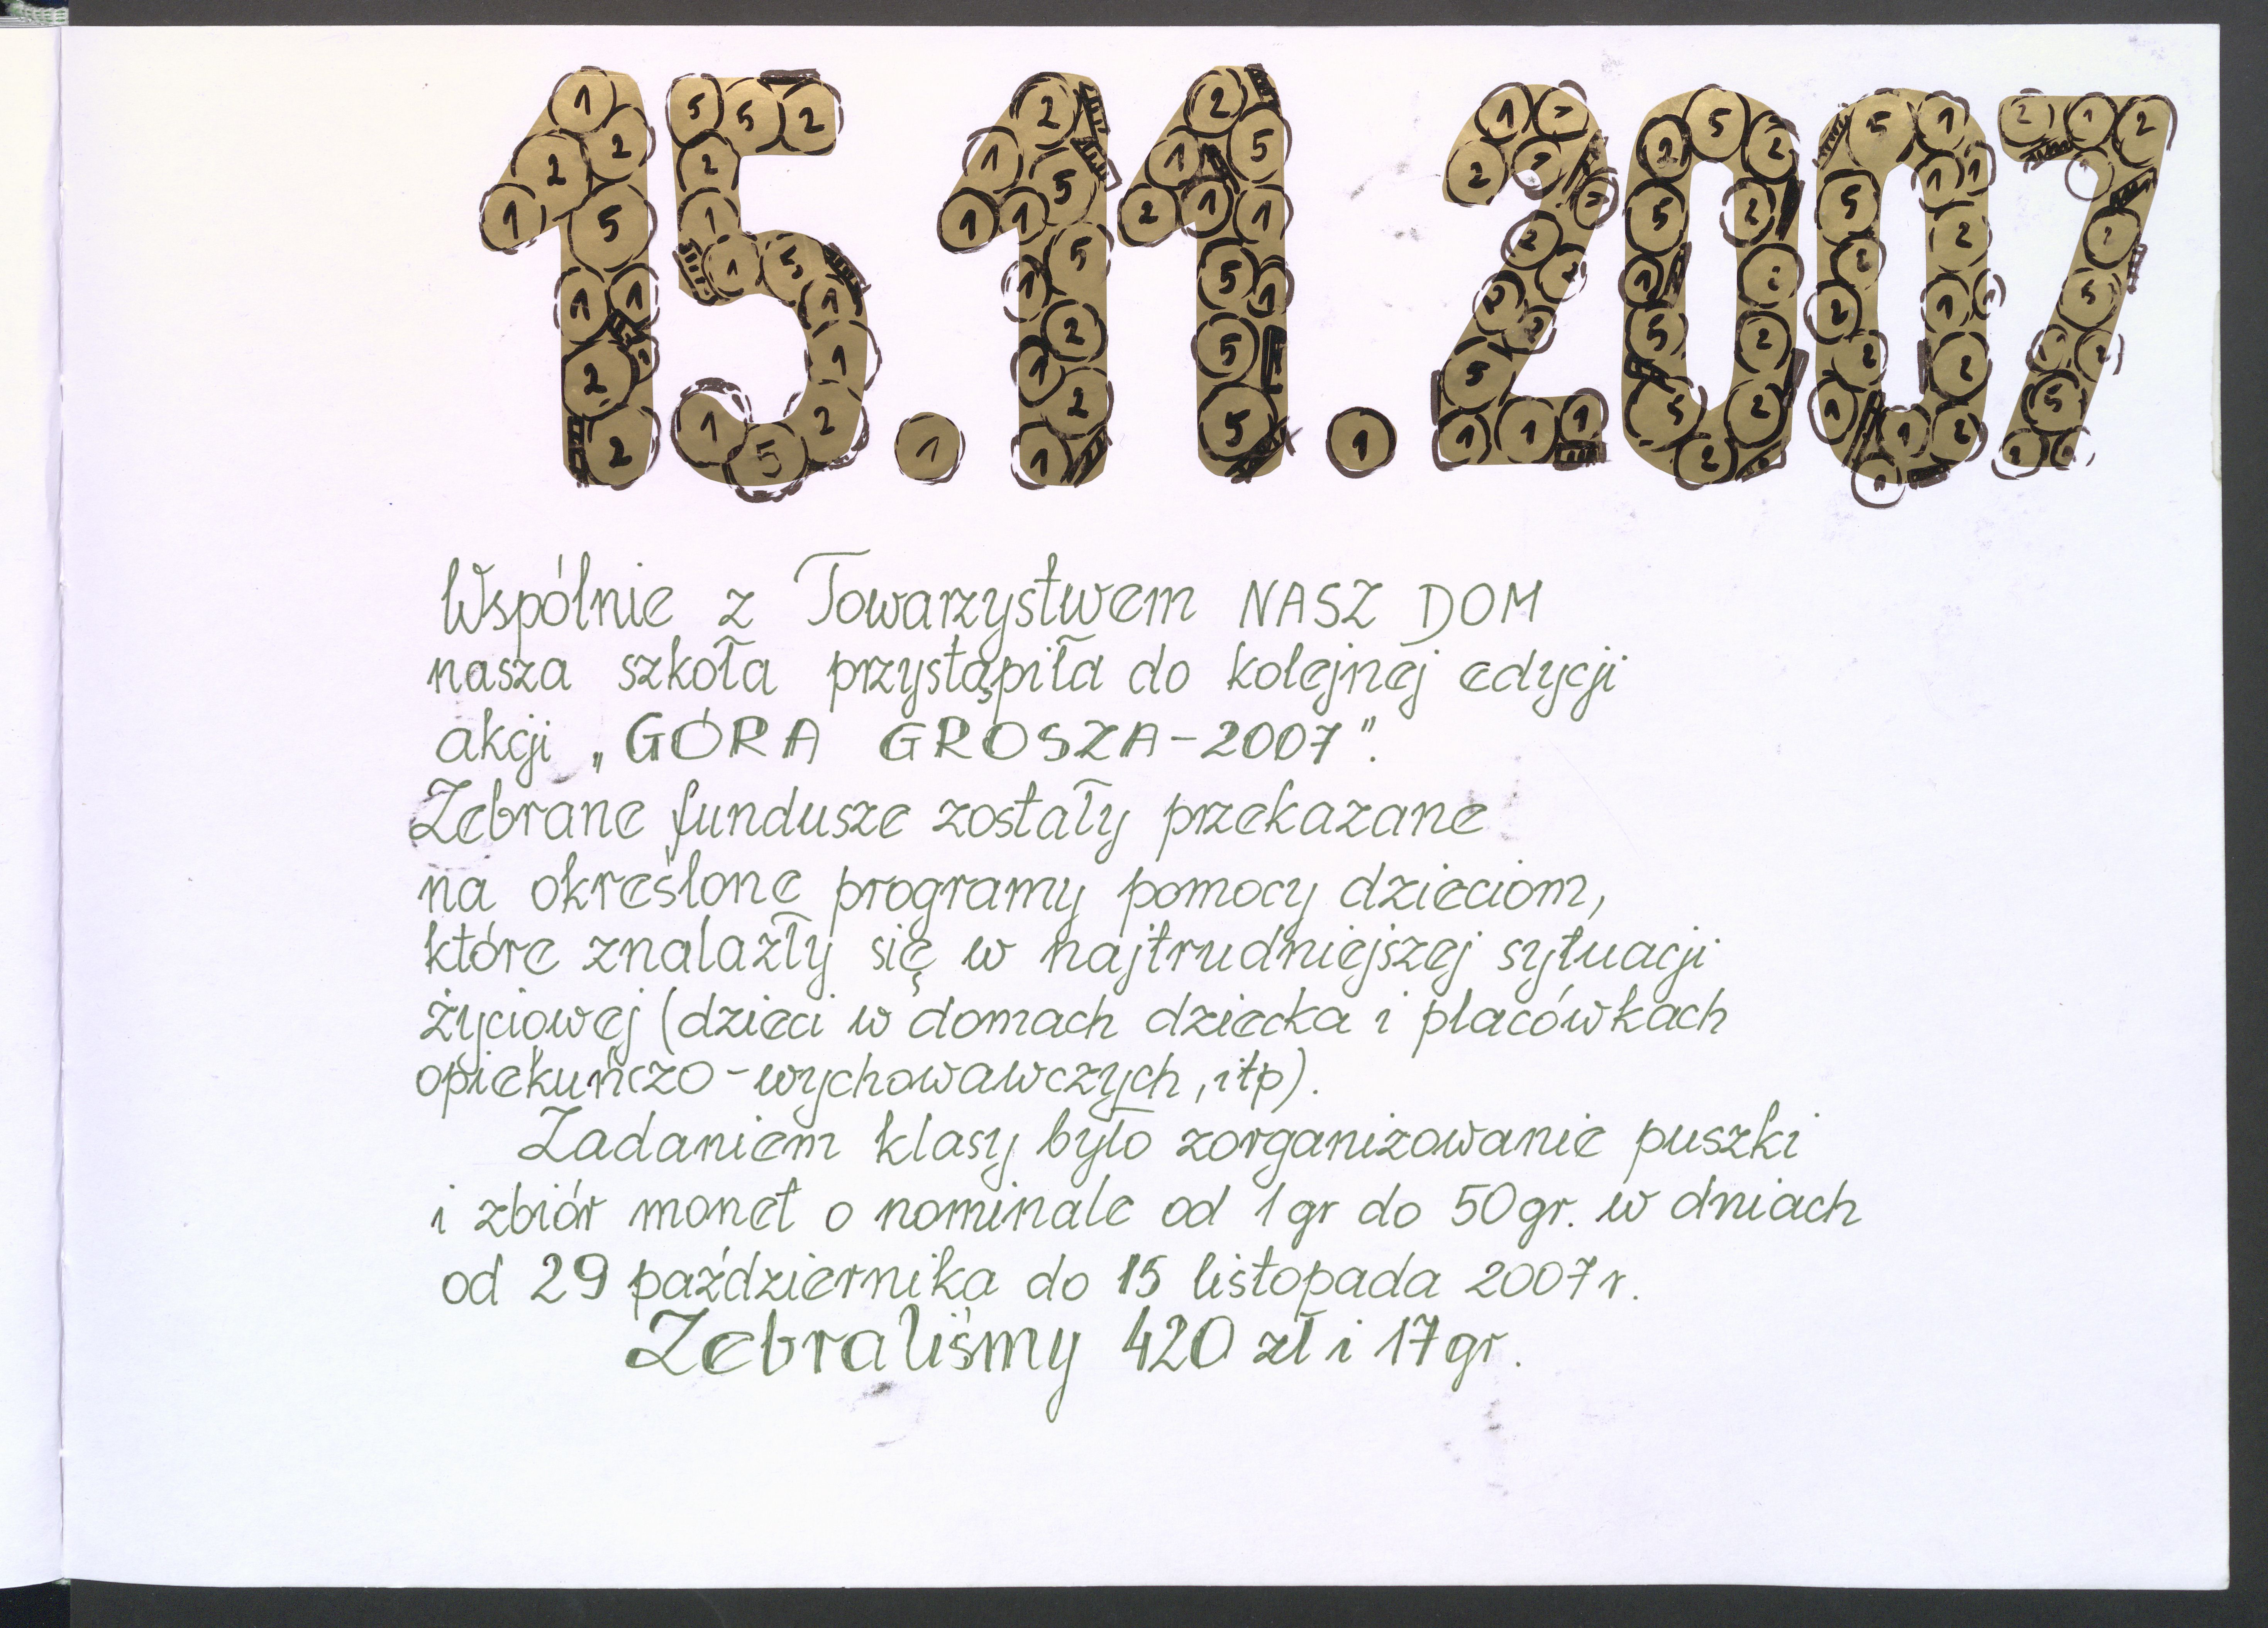 15.11.2007
Wspólnie z Towarzystwem NASZ DOM
nasza szkoła przystąpiła do kolejnej edycji
akcji „GÓRA GROSZA-2007".
Zebrane fundusze zostały przekazane
na określone programy pomocy dzieciom,
które znalazły się w najtrudniejszej sytuacji
życiowej (dzieci w domach dziecka i placówkach
opiekuńczo-wychowawczych, itp).
Zadaniem klasy było zorganizowanie puszki
i zbiór monet o nominale od 1gr do 50gr. w dniach
od 29 października do 15 listopada 2007r.
Zebraliśmy 420 zł i 17gr.